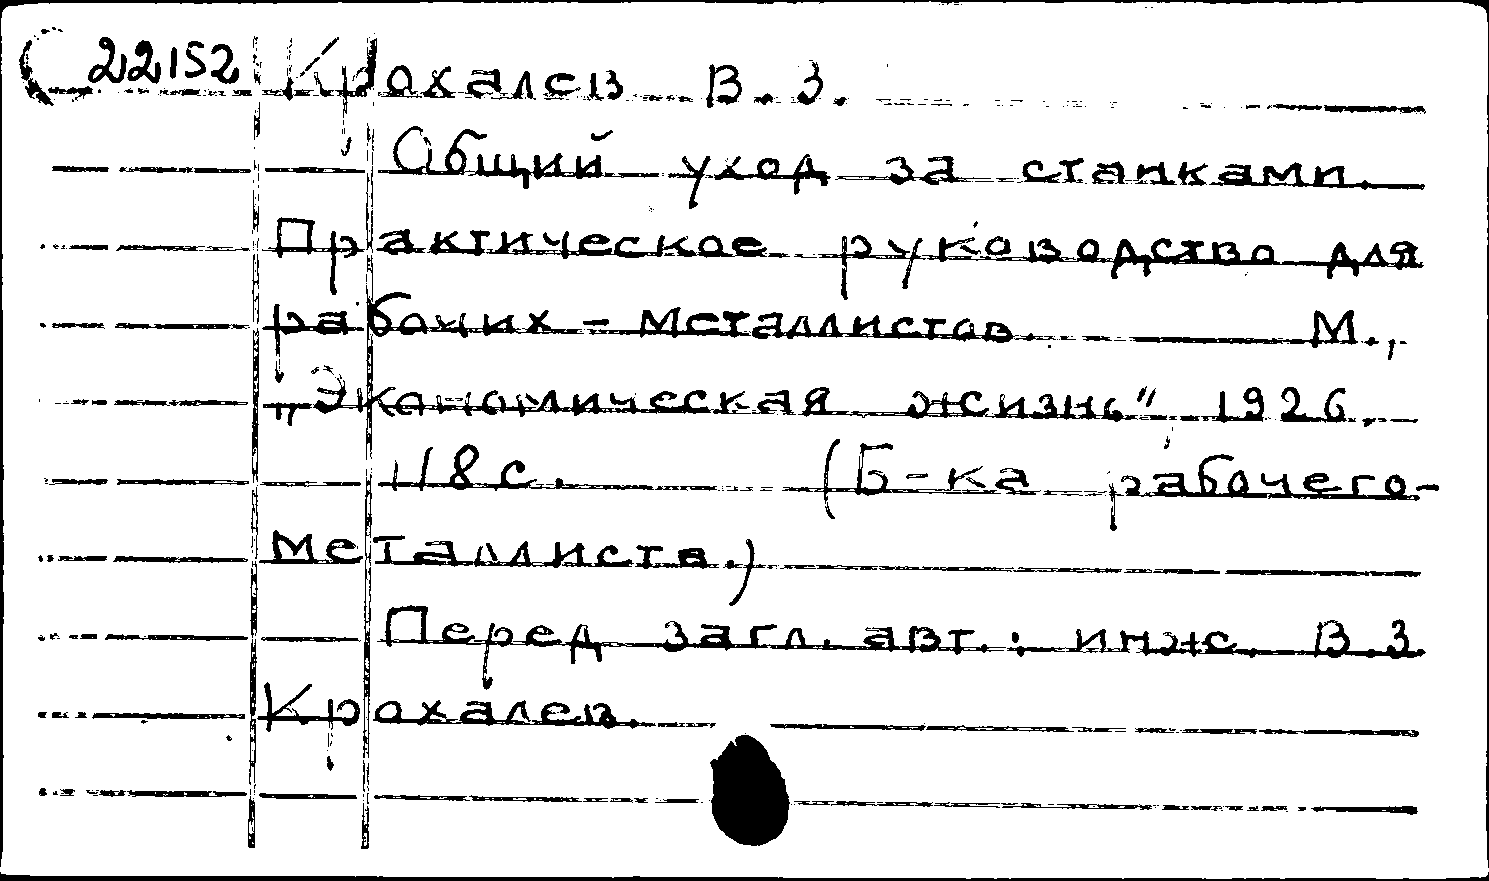 22152 Крохалев В. З.
Общий уход за станками.
Практическое руководство для
рабочих - металлистов. М.,
„Экономическая жизнь“ 1926.
118 с. (Б-ка рабочего-
металлиста.)
Перед загл. авт.: инж. В.З.
Крохалев.